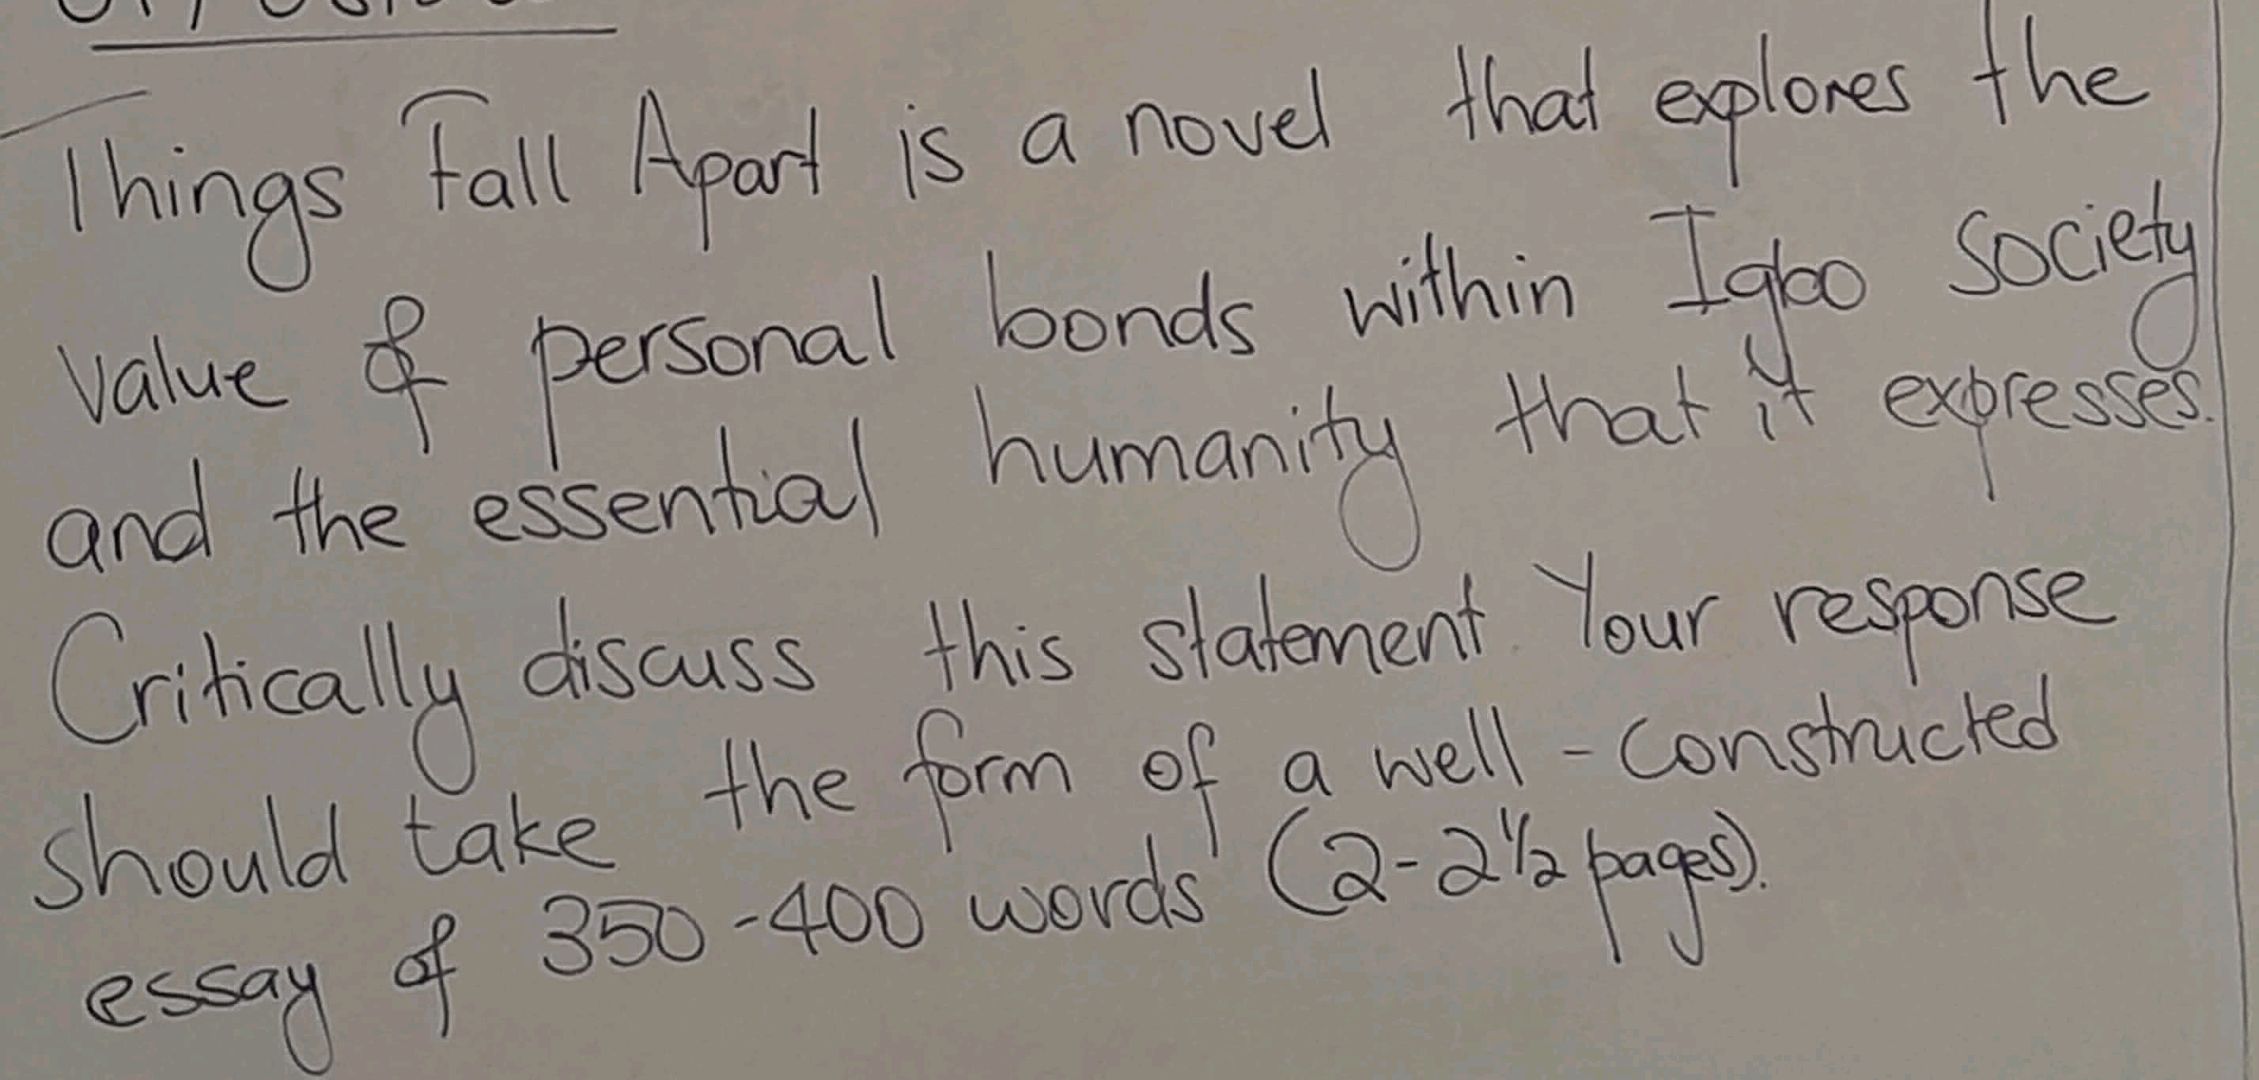 Things Fall Apart is a novel that explores the
value of personal bonds within Igbo society
and the essential humanity that it expresses.
Critically discuss this statement. Your response
should take the form of a well-constructed
essay of 350-400 words (2-2½ pages).